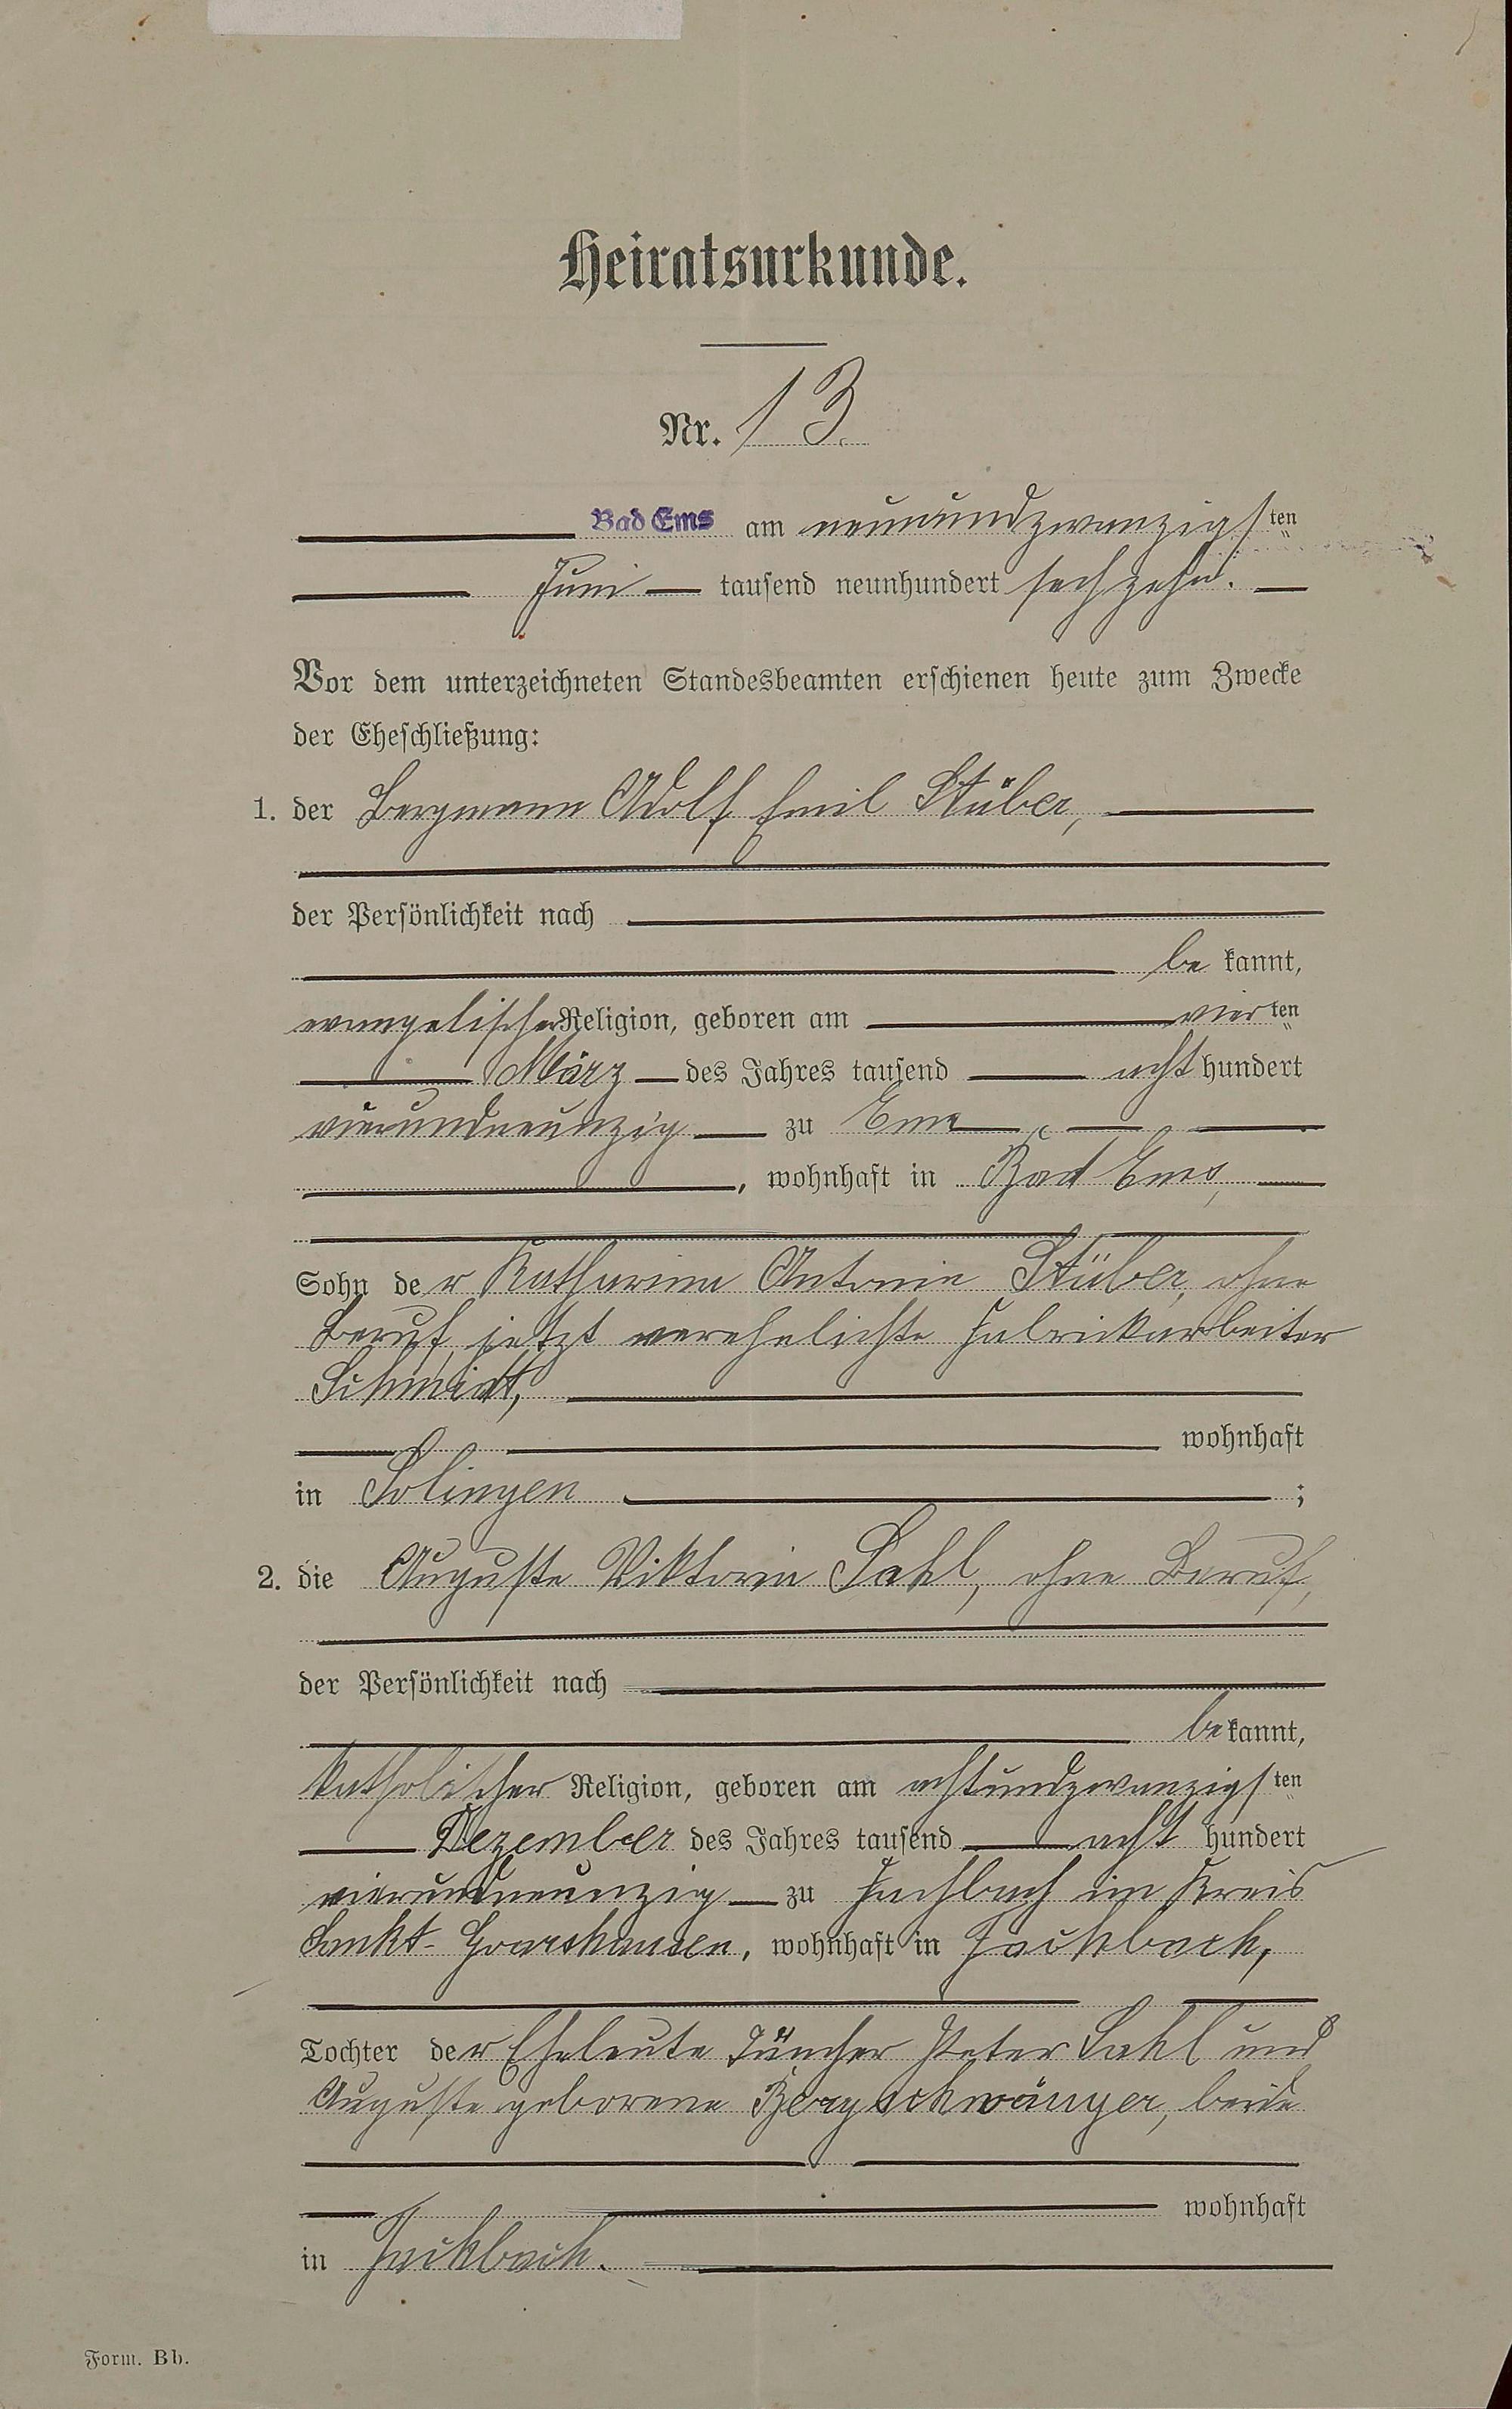 Heiratsurkunde.
Nr. 13.
Bad Ems am neunundzwanzigsten
Juni tausend neunhundert sechzehn.
Vor dem unterzeichneten Standesbeamten erschienen heute zum Zwecke
der Eheschließung:
1. der Bergmann Adolf Emil Stüber,
der Persönlichkeit nach
be kannt,
evangelischer Religion, geboren am vierten
März des Jahres tausend acht hundert
vierundneunzig zu Ems
, wohnhaft in Bad Ems,
Sohn der Katharina Antonie Stüber, ohne
Beruf, jetzt verehelichte Fabrikarbeiter
Schmidt,
wohnhaft
in Solingen ;
2. die Auguste Viktoria Sahl, ohne Beruf,
der Persönlichkeit nach
bekannt,
katholischer Religion, geboren am achtundzwanzigsten
Dezember des Jahres tausend acht hundert
vierundneunzig zu Fachbach im Kreis
Sankt-Goarshausen, wohnhaft in Fachbach,
Tochter der Eheleute Tüncher Peter Sahl und
Auguste geborene Bergschwänger, beide
wohnhaft
in Fachbach.
Form. Bb.